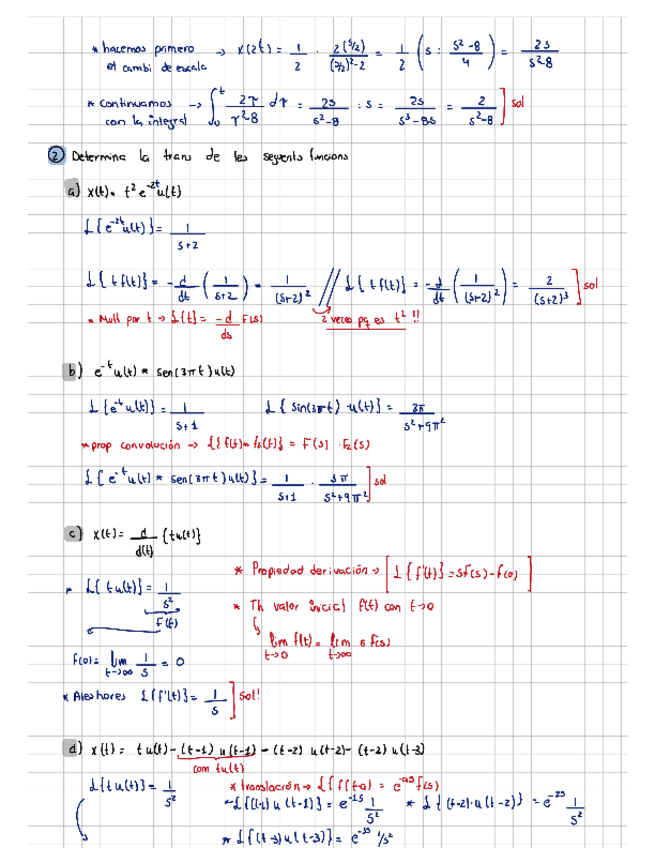 * hacemos primero → x(2t) = 1/2 · 2(s/2)/((s/2)²-2 = 1/2 (s : s²-8/4) = 2s/s²-8
el cambi de escala
* continuamos → ∫₀ᵗ 2τ/τ²-8 dτ = 2s/s²-8 : s = 2s/s³-8s = 2/s²-8 ] sol
con la integral
② Determina la trans de les seguents funcions
a) x(t) = t² e^-2t u(t)
L{e^-2t u(t)} = 1/s+2
L{t f(t)} = -d/dt (1/s+2) = 1/(s+2)² // L{t f(t)} = -d/dt (1/(s+2)²) = 2/(s+2)³ ] sol
* Mult por t → L{t} = -d/ds F(s) 2 veces pq es t² !!
b) e^-t u(t) * sen(3πt) u(t)
L{e^-t u(t)} = 1/s+1 L{sin(3πt) · u(t)} = 3π/s²+9π²
* prop convolución → L{f(t) * f₂(t)} = F(s) · F₂(s)
L{e^-t u(t) * sen(3πt) u(t)} = 1/s+1 · 3π/s²+9π² ] sol
c) x(t) = d/d(t) {tu(t)}
* Propiedad derivación → [L{f'(t)} = sF(s) - f(0)]
* L{tu(t)} = 1/s²
F(t)
* Th valor inicial f(t) con t→0
lim t→0 f(t) = lim t→∞ s F(s)
F(0) = lim t→∞ 1/s = 0
* Aleshores L{f'(t)} = 1/s ] sol!
d) x(t) = t u(t) - (t-1) u(t-1) - (t-2) u(t-2) - (t-3) u(t-3)
com tu(t)
L{tu(t)} = 1/s² * translación → L{f(t-a) = e^-as F(s)
-L{(t-1) u(t-1)} = e^-1s 1/s² * L{(t-2)·u(t-2)} = e^-2s 1/s²
* L{(t-3)u(t-3)} = e^-3s 1/s²